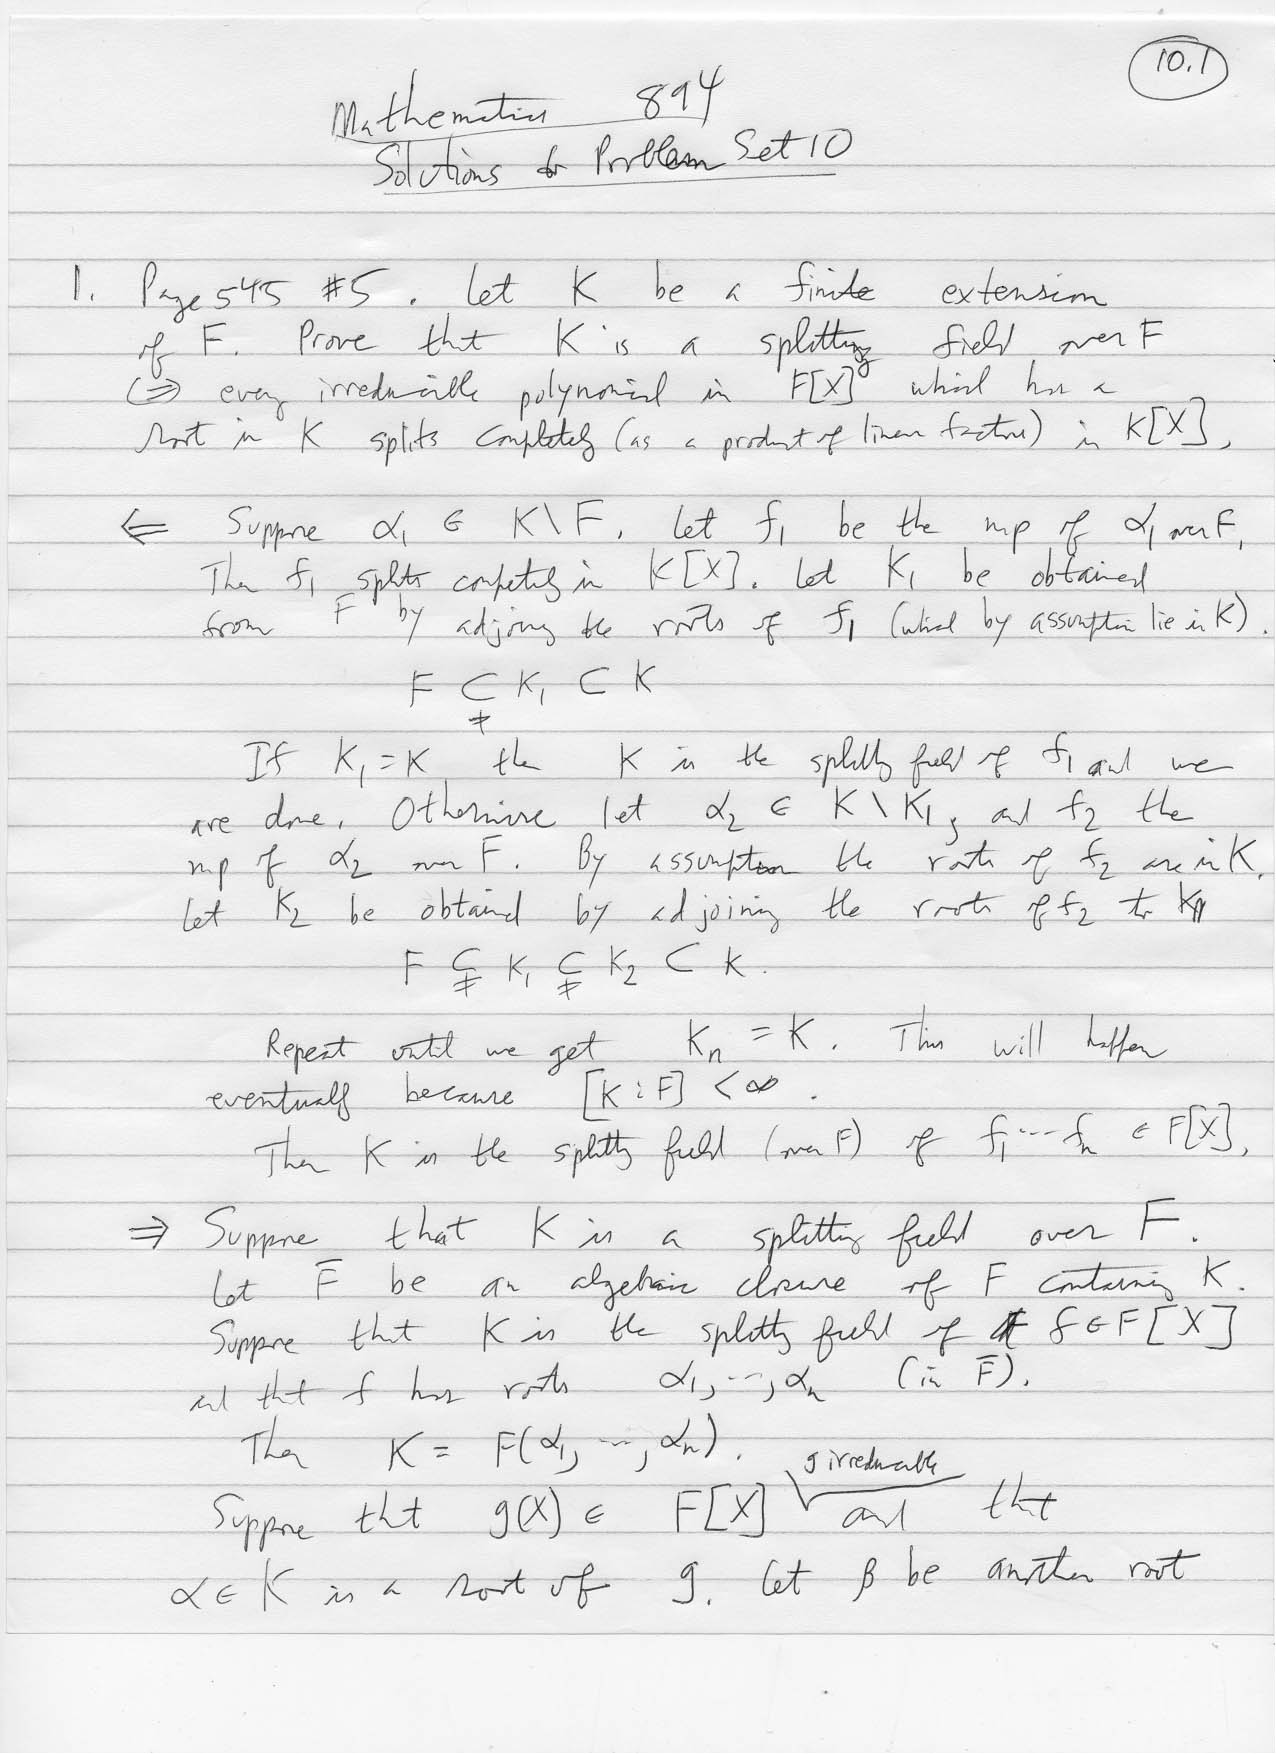 10.1
Mathematics 894
Solutions to Problem Set 10
1. Page 545 #5. Let K be a finite extension
of F. Prove that K is a splitting field over F
(⇒ every irreducible polynomial in F[X] which has a
root in K splits completely (as a product of linear factors) in K[X].
⇐ Suppose α₁ ∈ K\F. Let f₁ be the mp of α₁ over F.
Then f₁ splits completely in K[X]. Let K₁ be obtained
from F by adjoining the roots of f₁ (which by assumption lie in K).
F ⊊ K₁ ⊂ K
If K₁ = K then K is the splitting field of f₁ and we
are done. Otherwise let α₂ ∈ K \ K₁, and f₂ the
mp of α₂ over F. By assumption the roots of f₂ are in K.
Let K₂ be obtained by adjoining the roots of f₂ to K₁
F ⊊ K₁ ⊊ K₂ ⊂ K.
Repeat until we get Kₙ = K. This will happen
eventually because [K:F] < ∞.
Then K is the splitting field (over F) of f₁ ⋯ fₙ ∈ F[X].
⇒ Suppose that K is a splitting field over F.
Let F̅ be an algebraic closure of F containing K.
Suppose that K is the splitting field of f ∈ F[X]
and that f has roots α₁, ⋯, αₙ (in F̅).
Then K = F(α₁, ⋯, αₙ).
g irreducible
Suppose that g(X) ∈ F[X] and that
α ∈ K is a root of g. Let β be another root